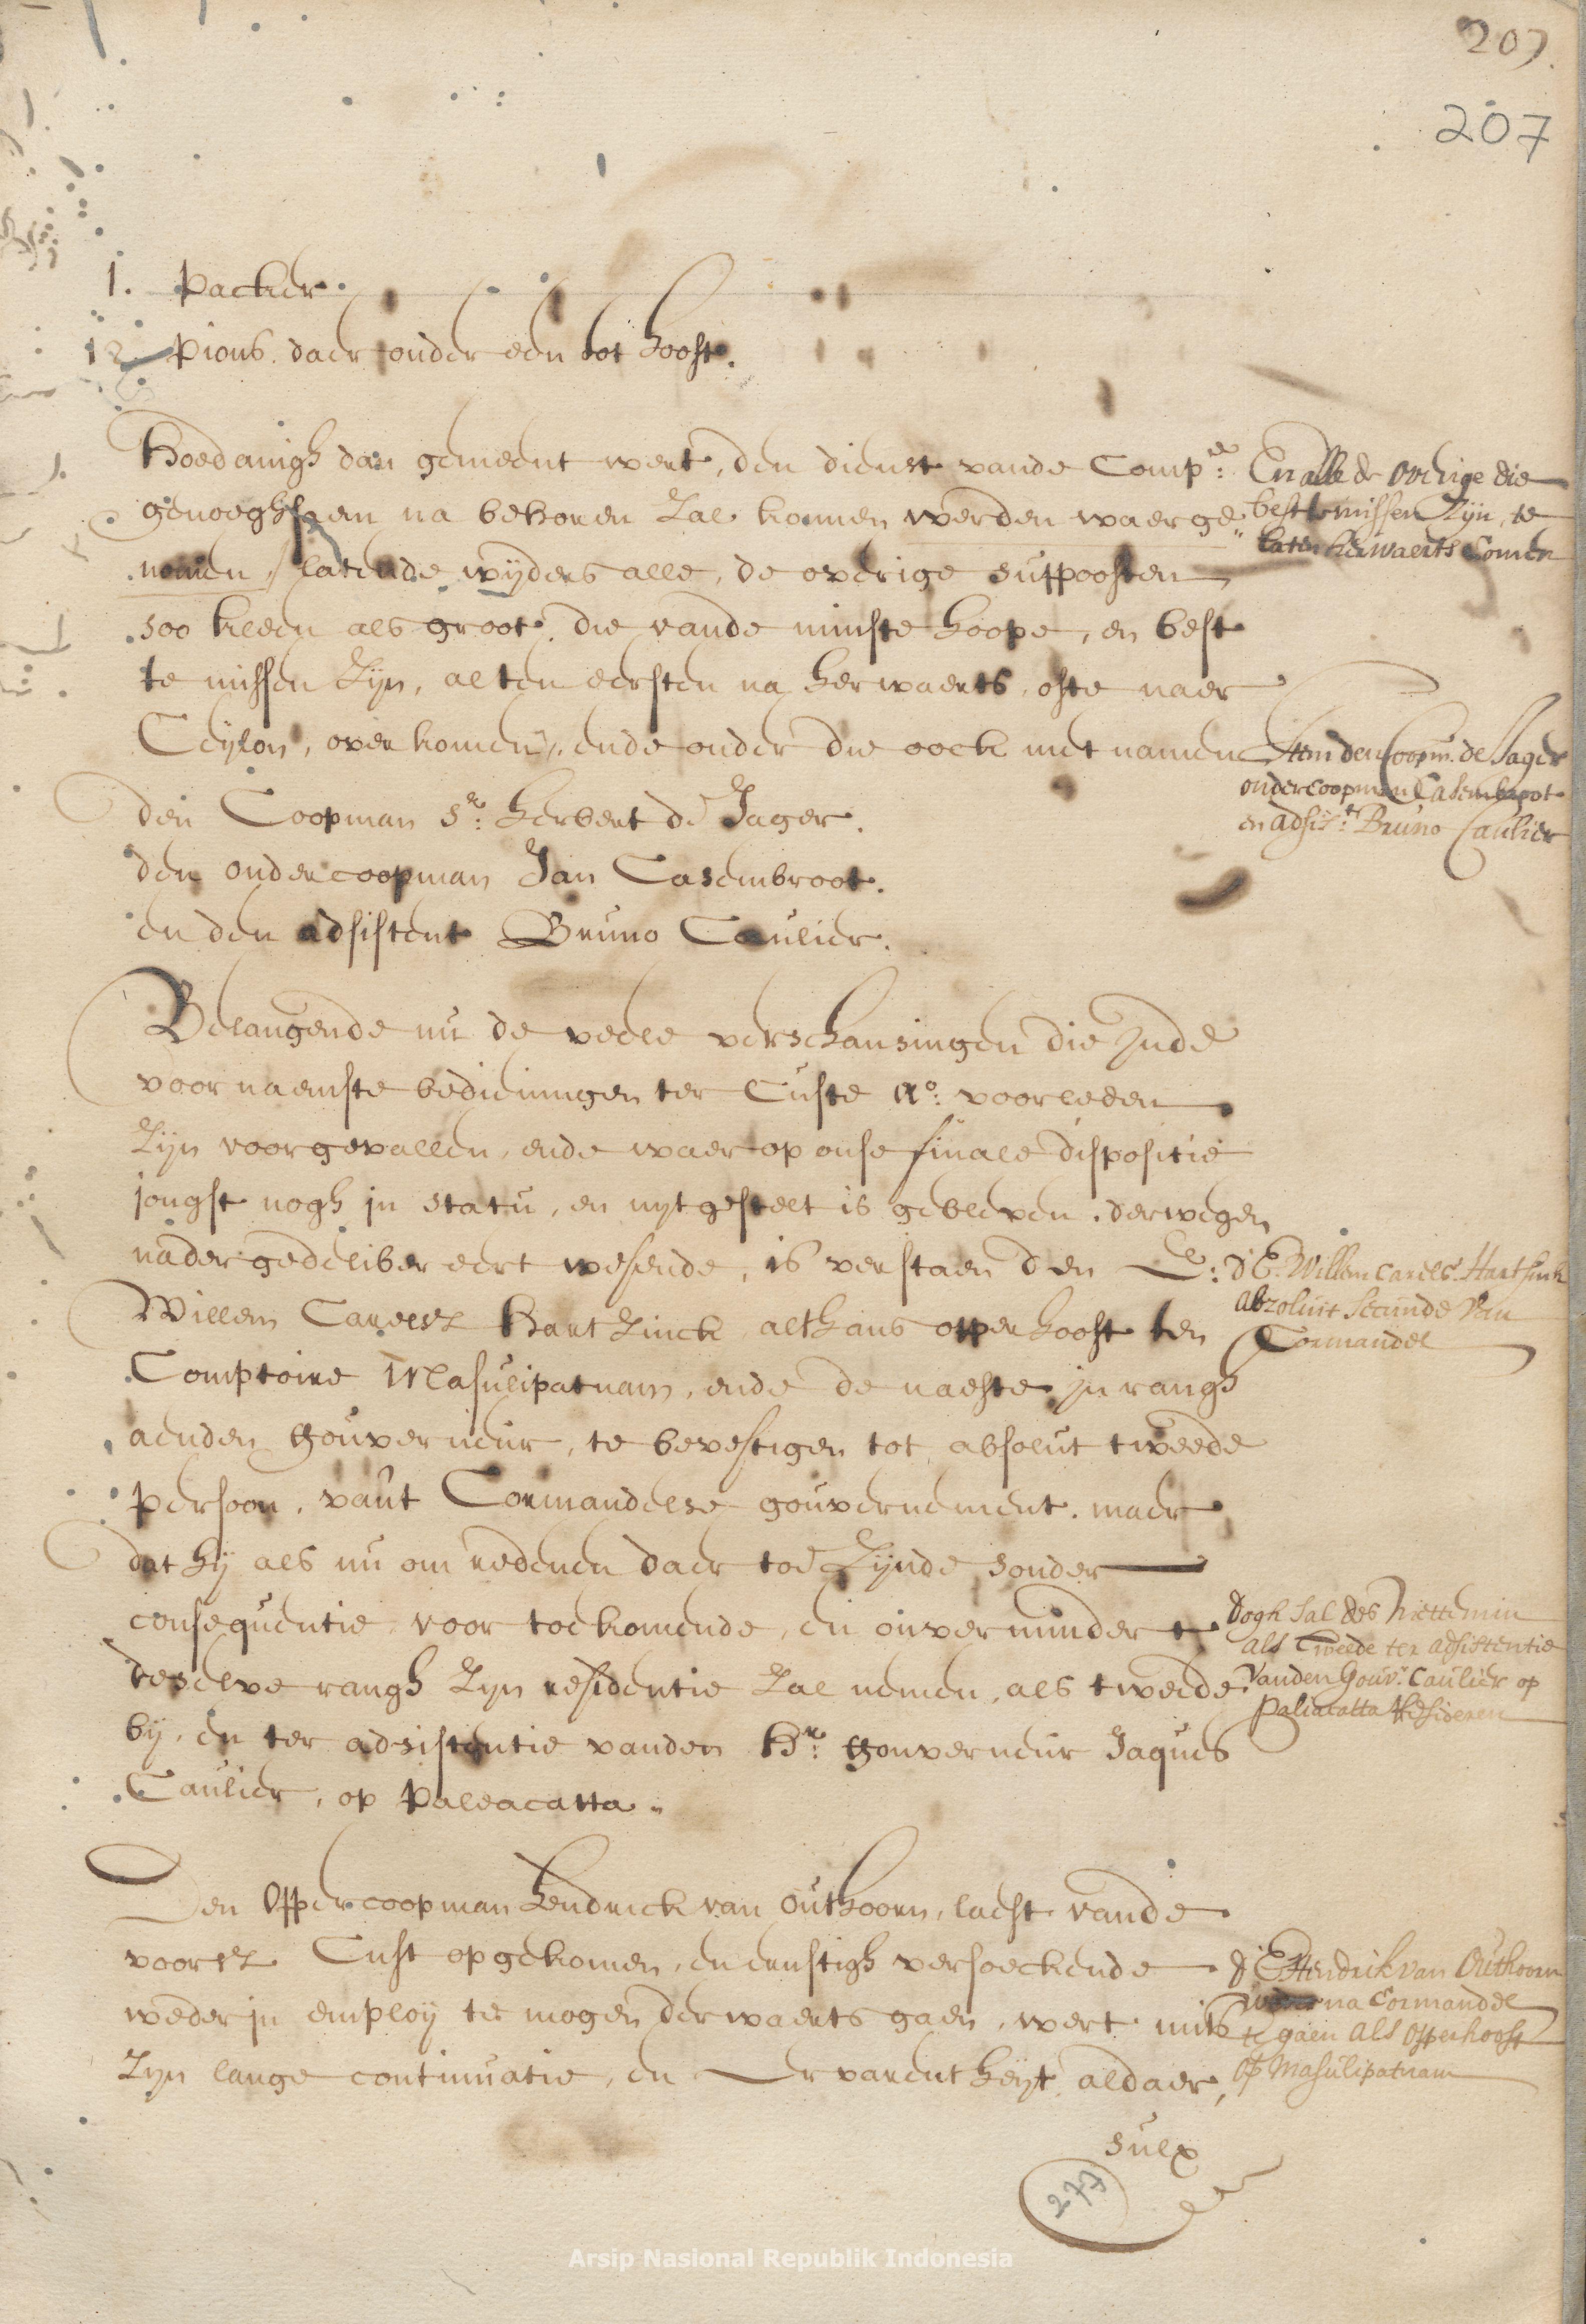 207.
207
1. Packer.
12. Pions. daer onder een tot hooft.
Hoedanigh dan gemeent wert, den dienst vande Comp:e
genoeghsaem na behoren zal konnen werden waerge„
nomen, latende wijders alle, de overige suppoosten
soo kleen als groot, die vande minste hoope, en best
te missen zijn, al ten eersten na herwaerts, ofte naer
Ceijlon, over komen, ende onder die oock met namen
den Coopman Sr: Herbert de Jager.
den ondercoopman Jan Casembroot.
en den adsistent Bruno Caulier.
En alle de overige die
best te missen Zijn, te
laten herwaerts Comen
Item den Coopm. de Jager
ondercoopman Casembroot
en adsist:t Bruno Caulier
Belangende nu de veele verschansingen die inde
voornaemste bedieningen ter Custe Ao: voorleden
zijn voorgevallen, ende waer op onse finale dispositie
jongst nogh in statu, en uijtgestelt is gebleven. derwegen
nader gedelibereert wesende, is verstaen den E:
Willem Carelsz Hartzinck althans opperhooft ten
Comptoire Masulipatnam, ende de naeste in rangh
aenden Gouverneur, te bevestigen tot absolut tweede
persoon, vant Cormandelse gouvernement. maer
dat hij als nu om redenen daer toe zijnde sonder
consequentie voor toekomende, en onvermindert
deselve rangh zijn residentie zal nemen, als tweede
bij, en ter adsistentie vanden Hr: Gouverneur Jaques
Caulier, op Paleacatta.
d'E. Willem Carels. Hartsink
Abzoluit Secunde van
Cormandel
Dogh sal des niettemin
als Tweede ter adsistentie
vanden Gouvr. Caulier op
Paliacatta Resideren
Den Oppercoopman Hendrick van Outhoorn, laest vande
voorsz Cust opgekomen, en ernstigh versoeckende
weder in employ te mogen derwaerts gaen, wert mits
zijn lange continuatie, en Ervarentheijt aldaer,
sulx
d'E Hendrik van Outhoorn
weder na Cormandel
te gaen als Opperhooft
op Masulipatnam
277
Arsip Nasional Republik Indonesia